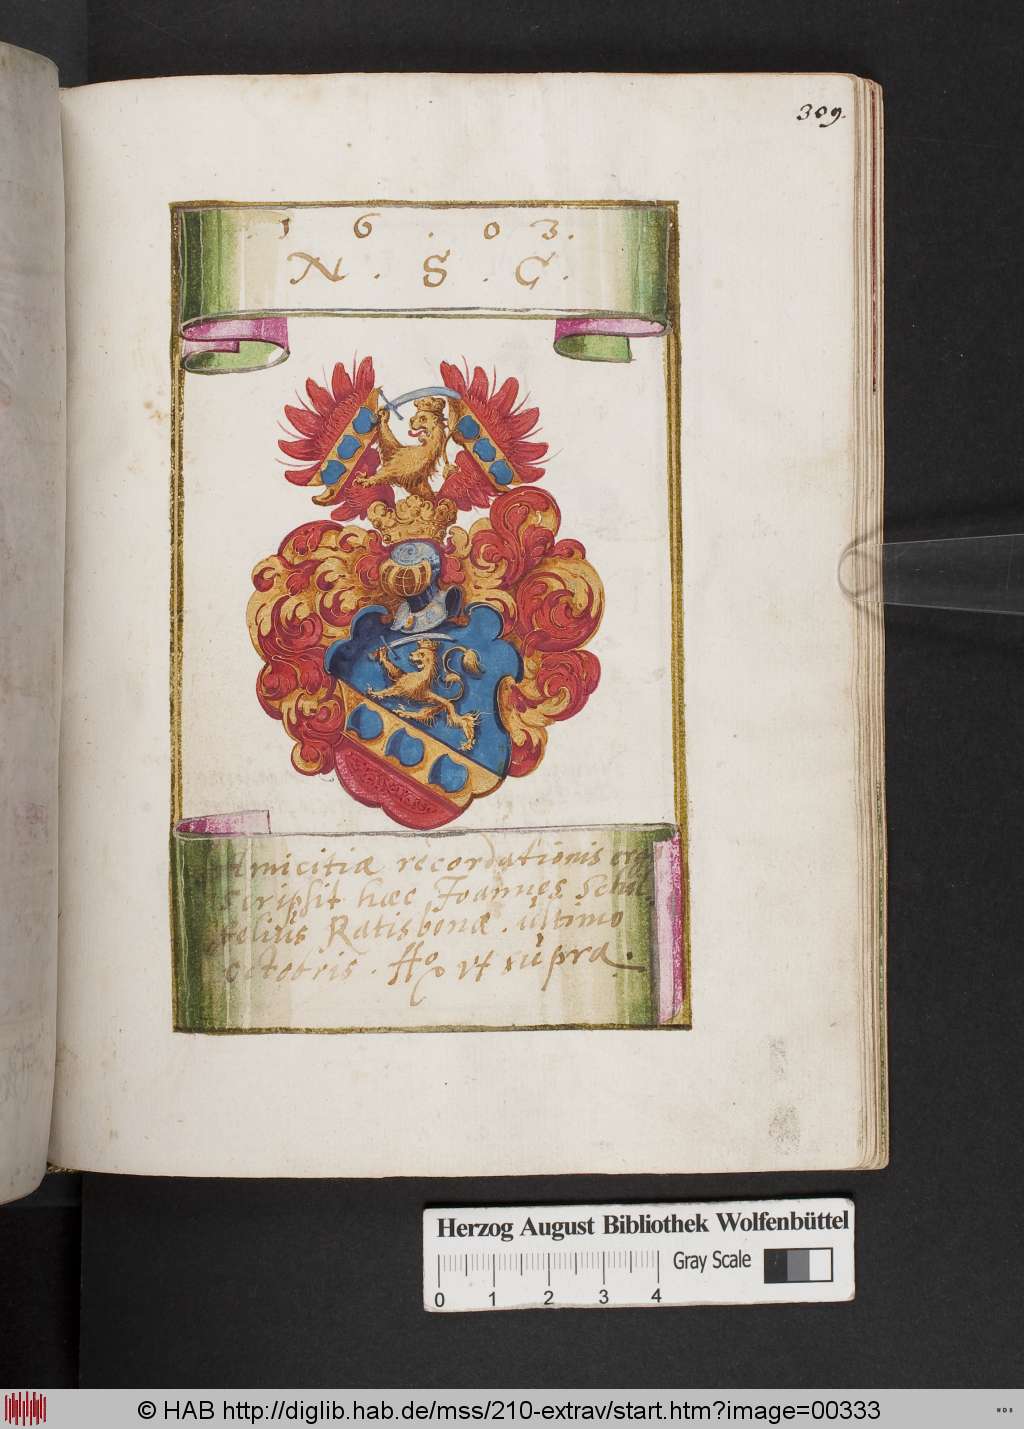 309.
. 1 6 . 0 3 .
N . S . G .
Amicitiæ recordationis ergo
scripsit hæc Joannes Schil
telius Ratisbonæ . ultimo
octobris . Ao ut supra .
Herzog August Bibliothek Wolfenbüttel
Gray Scale
0 1 2 3 4
© HAB http://diglib.hab.de/mss/210-extrav/start.htm?image=00333